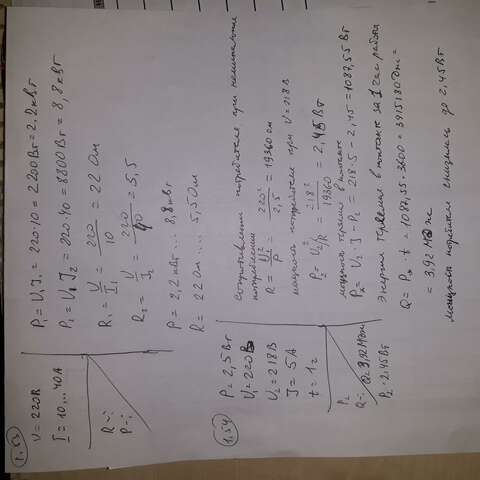 1.53
U = 220В
I = 10...40А
R-?
P-?
P₁ = U₁I₁ = 220·10 = 2200Вт = 2,2кВт
P₂ = U₁I₂ = 220·40 = 8800Вт = 8,8кВт
R₁ = U/I₁ = 220/10 = 22 Ом
R₂ = U/I₂ = 220/40 = 5,5
P = 2,2кВт... 8,8кВт
R = 22 Ом ... 5,5 Ом
1.54
P = 2,5Вт
U₁ = 220В
U₂ = 218В
I = 5А
t = 1г
P₂
Q-? Q = 3,92МДж
P₂ = 2,45Вт
потребителя при
R = U₁²/P = 220²/2,5 = 19360 Ом
мощность потребителя при U = 218В
P₂ = U₂²/R = 218²/19360 = 2,45Вт
мощность
Pк = U₂·I - P₂ = 218·5 - 2,45 = 1087,55Вт
энергия за 1 час работы
Q = Pк·t = 1087,55·3600 = 3915180Дж =
= 3,92 МДж
мощность потребителя до 2,45Вт